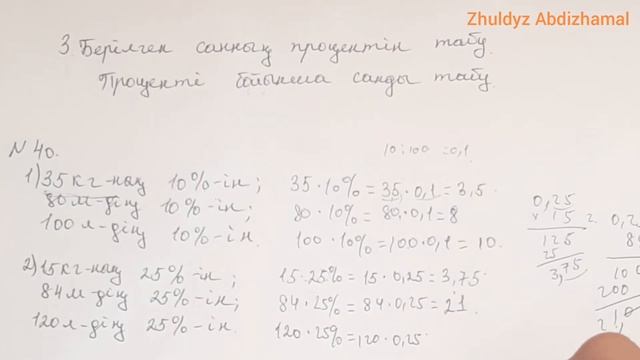 Zhuldyz Abdizhamal
3. Берілген санның процентін табу.
Проценті бойынша санды табу.
N 40.
10:100=0,1.
1) 35 кг-ның 10%-ін; 35·10%=35·0,1=3,5.
80 м-дің 10%-ін; 80·10%=80·0,1=8
100 л-дің 10%-ін. 100·10%=100·0,1=10.
2) 15 кг-ның 25%-ін; 15·25%=15·0,25=3,75.
84 м-дің 25%-ін; 84·25%=84·0,25=21
120 л-дің 25%-ін. 120·25%=120·0,25.
0,25
×15
125
25
3,75